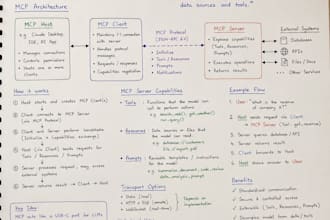 MCP Architecture
data sources and tools."
MCP Host
MCP Client
MCP Protocol
MCP Server
External Systems
e.g. Claude Desktop,
IDE, or App
- Manages connections
- Controls permissions
- Hosts one or more
clients
- Maintains 1:1 connection
with server
- Handles protocol
messages
- Requests / responses
- Capabilities negotiation
(JSON-RPC 2.0)
• Initialize
• Tools / Resources
• Prompts
• Notifications
- Exposes capabilities
(Tools, Resources,
Prompts)
- Executes operations
- Returns results
Databases
APIs
Files / Docs
... Other Services
How it works
① Host starts and creates MCP Client(s)
② Client connects to MCP Server
(via MCP Protocol)
③ Client and Server perform handshake
(Initialize → Capabilities exchange)
④ Host (via Client) sends requests for
Tools / Resources / Prompts
⑤ Server processes request, may access
external systems
⑥ Server returns result → Client → Host
MCP Server Capabilities
• Tools
- Functions that the model can
call to perform actions
• Resources
- Data sources or files that
the model can read
• Prompts
- Reusable templates / instructions
for the model
Transport Options
Example Flow
① User:
② Host sends request via Client to
MCP Server
③ Server queries database / API
④ Server returns result
⑤ Client forwards to Host
⑥ Host shows answer to User
Benefits
✓ Standardized communication
✓ Secure & controlled access
✓ Extensible (Tools, Resources, Prompts)
✓ Decouples model from data / tools
Key Idea
MCP acts like a USB-C port for LLMs